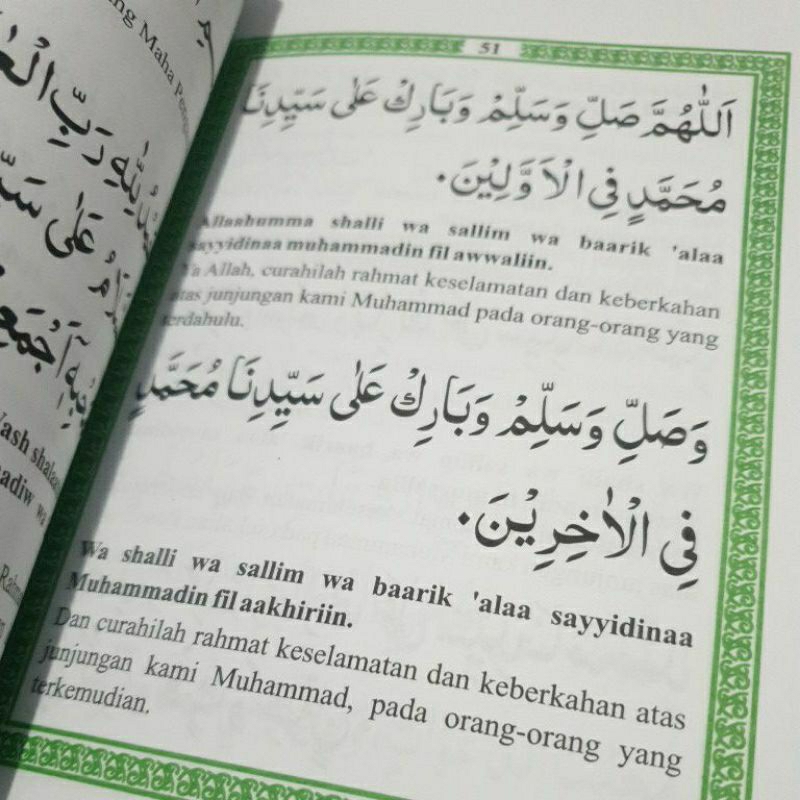 ing Maha Peng
رَبِّ الْعَا
عَلٰى سَيِّ
أَجْمَعِ
Wash shala
adiw wa
Rahm
51
اَللّٰهُمَّ صَلِّ وَسَلِّمْ وَبَارِكْ عَلٰى سَيِّدِنَا
مُحَمَّدٍ فِي الْاَوَّلِيْنَ.
Allaahumma shalli wa sallim wa baarik 'alaa
sayyidinaa muhammadin fil awwaliin.
Ya Allah, curahilah rahmat keselamatan dan keberkahan
atas junjungan kami Muhammad pada orang-orang yang
terdahulu.
وَصَلِّ وَسَلِّمْ وَبَارِكْ عَلٰى سَيِّدِنَا مُحَمَّدٍ
فِي الْاٰخِرِيْنَ.
Wa shalli wa sallim wa baarik 'alaa sayyidinaa
Muhammadin fil aakhiriin.
Dan curahilah rahmat keselamatan dan keberkahan atas
junjungan kami Muhammad, pada orang-orang yang
terkemudian.